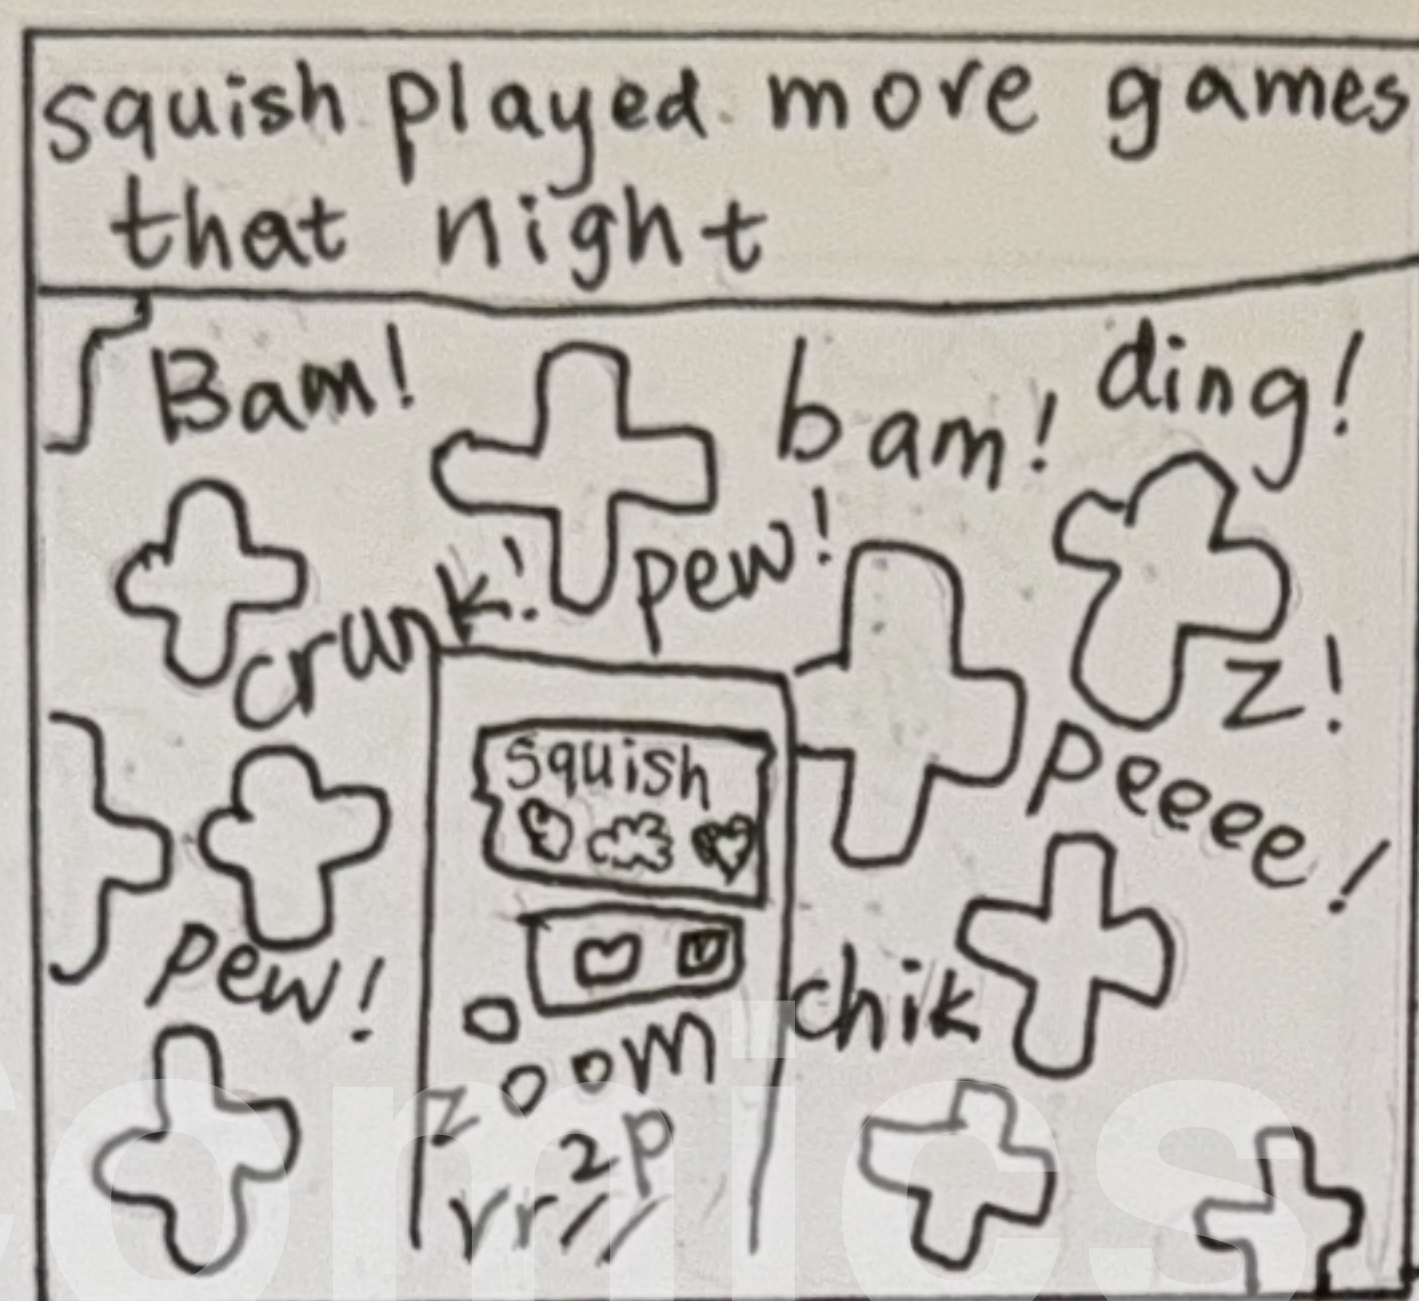 squish played more games
that night
Bam!
bam!
ding!
crunk!
pew!
z!
peeee!
squish
pew!
chik
zoom
omics